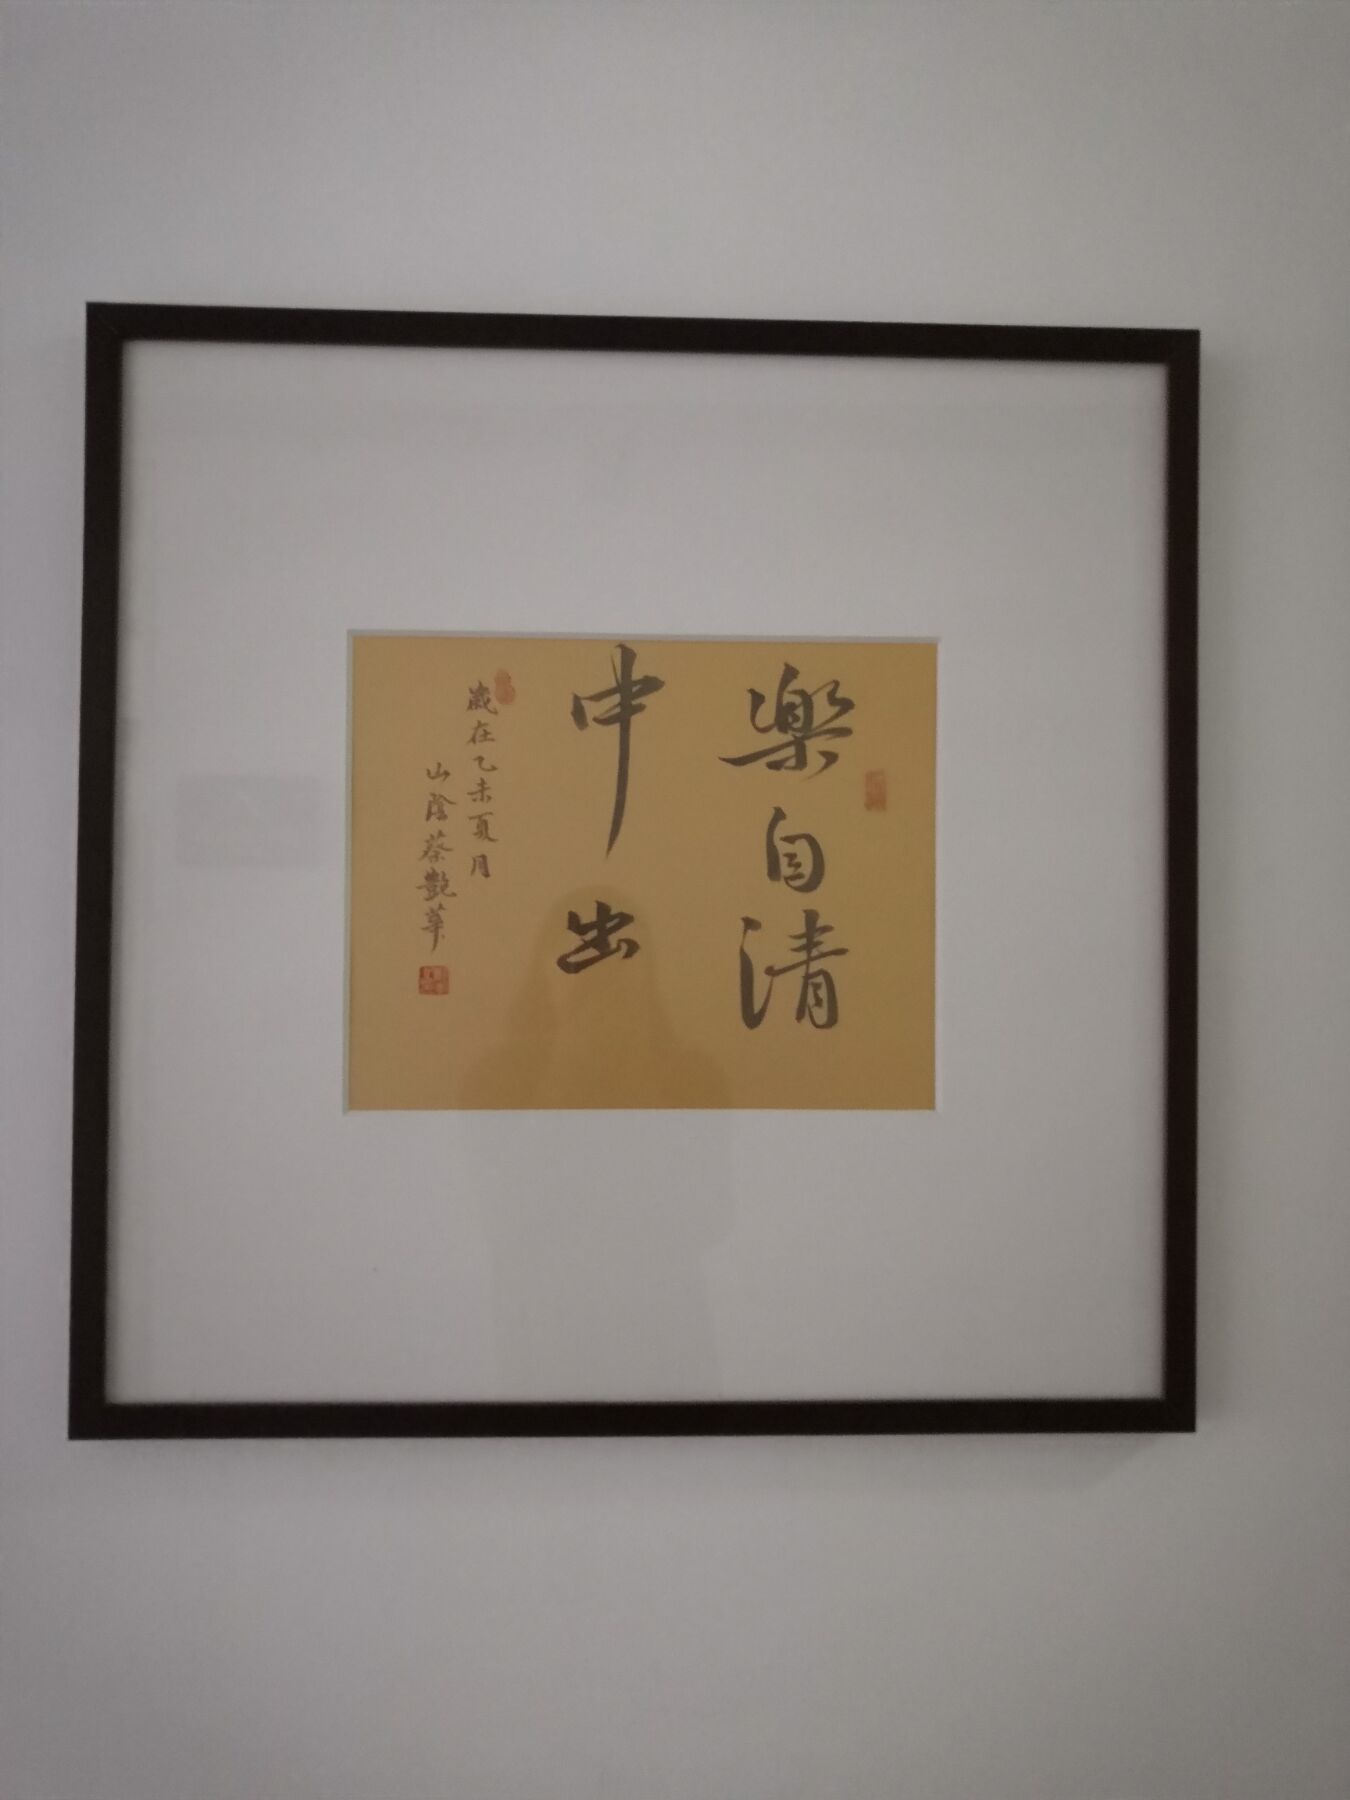 樂自清
中出
歲在乙未夏月
山陰蔡艷華